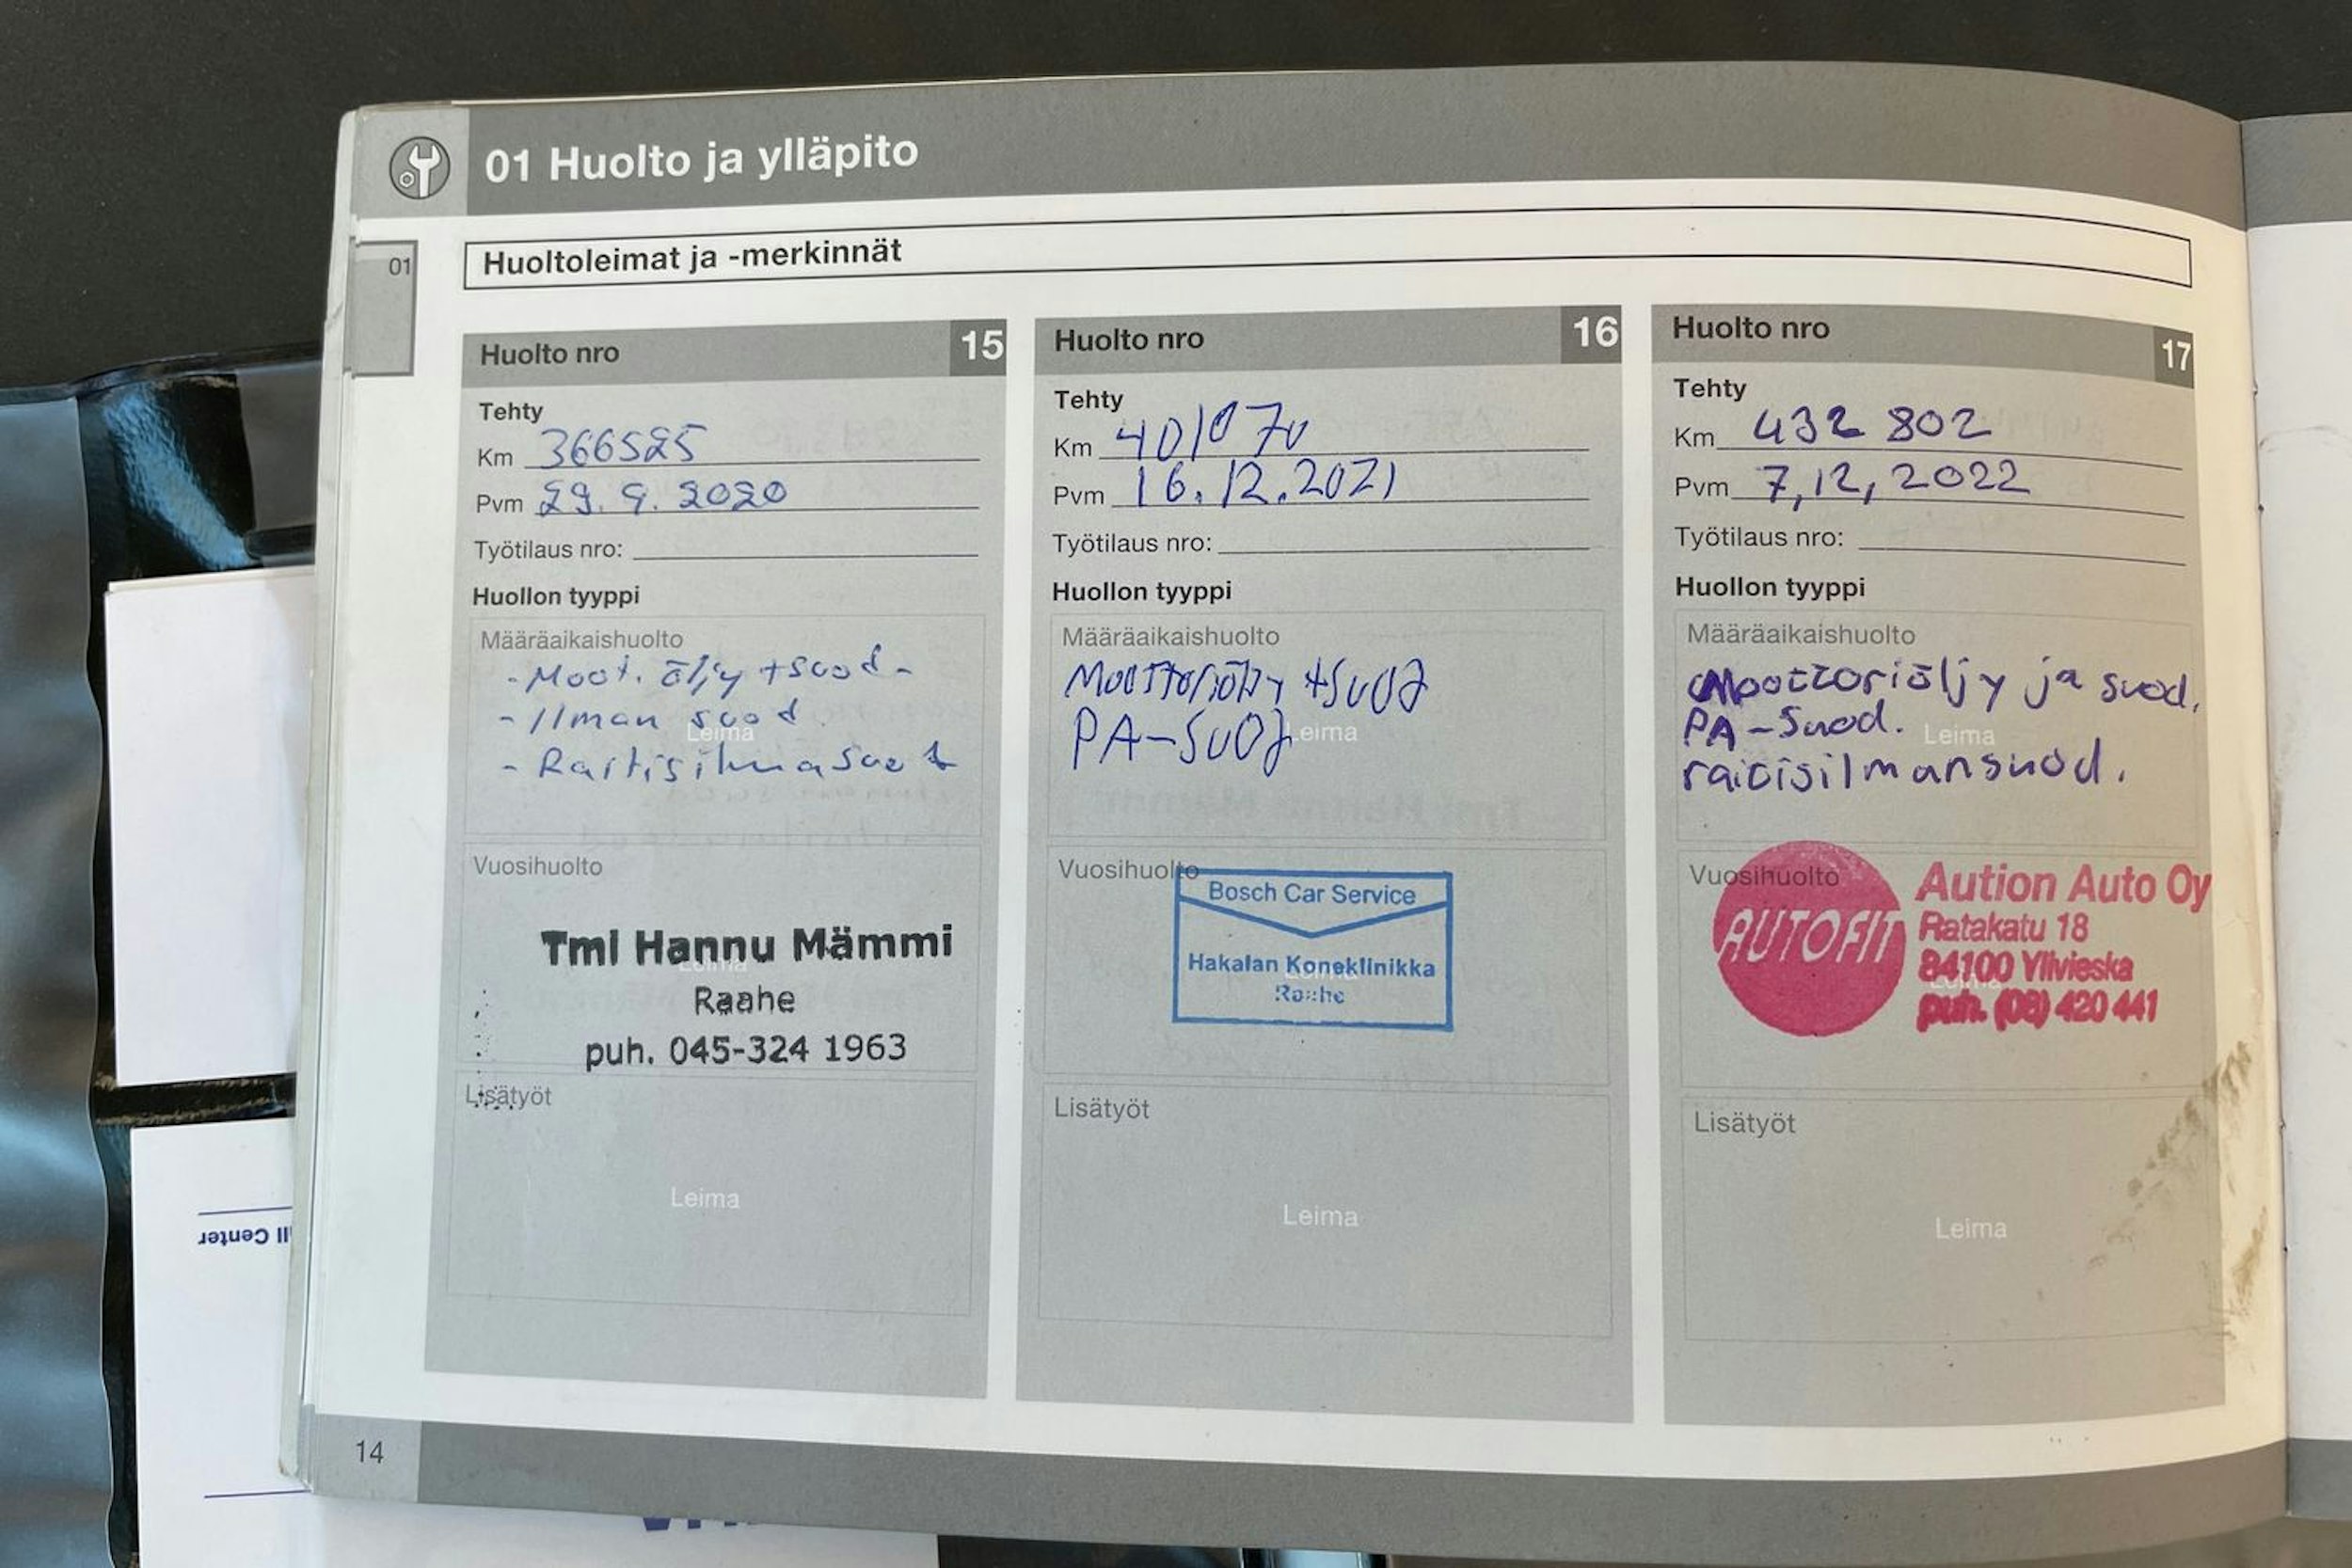 01 Huolto ja ylläpito
01
Huoltoleimat ja -merkinnät
Huolto nro 15
Tehty
Km 366525
Pvm 29.9.2020
Työtilaus nro:
Huollon tyyppi
Määräaikaishuolto
- Moot. öljy + suod -
- Ilman suod.
Leima
- Raitisilmasuod
Vuosihuolto
Tmi Hannu Mämmi
Leima
Raahe
puh. 045-324 1963
Lisätyöt
Leima
Huolto nro 16
Tehty
Km 401070
Pvm 16.12.2021
Työtilaus nro:
Huollon tyyppi
Määräaikaishuolto
Moottoriöljy +suod
PA-suod
Leima
Vuosihuolto
Bosch Car Service
Hakalan Koneklinikka
Raahe
Lisätyöt
Leima
Huolto nro 17
Tehty
Km 432 802
Pvm 7,12,2022
Työtilaus nro:
Huollon tyyppi
Määräaikaishuolto
Moottoriöljy ja suod.
PA-Suod.
Leima
raitisilmansuod.
Vuosihuolto
AUTOFIT
Aution Auto Oy
Ratakatu 18
84100 Ylivieska
Leima
puh. (08) 420 441
Lisätyöt
Leima
14
ll Center